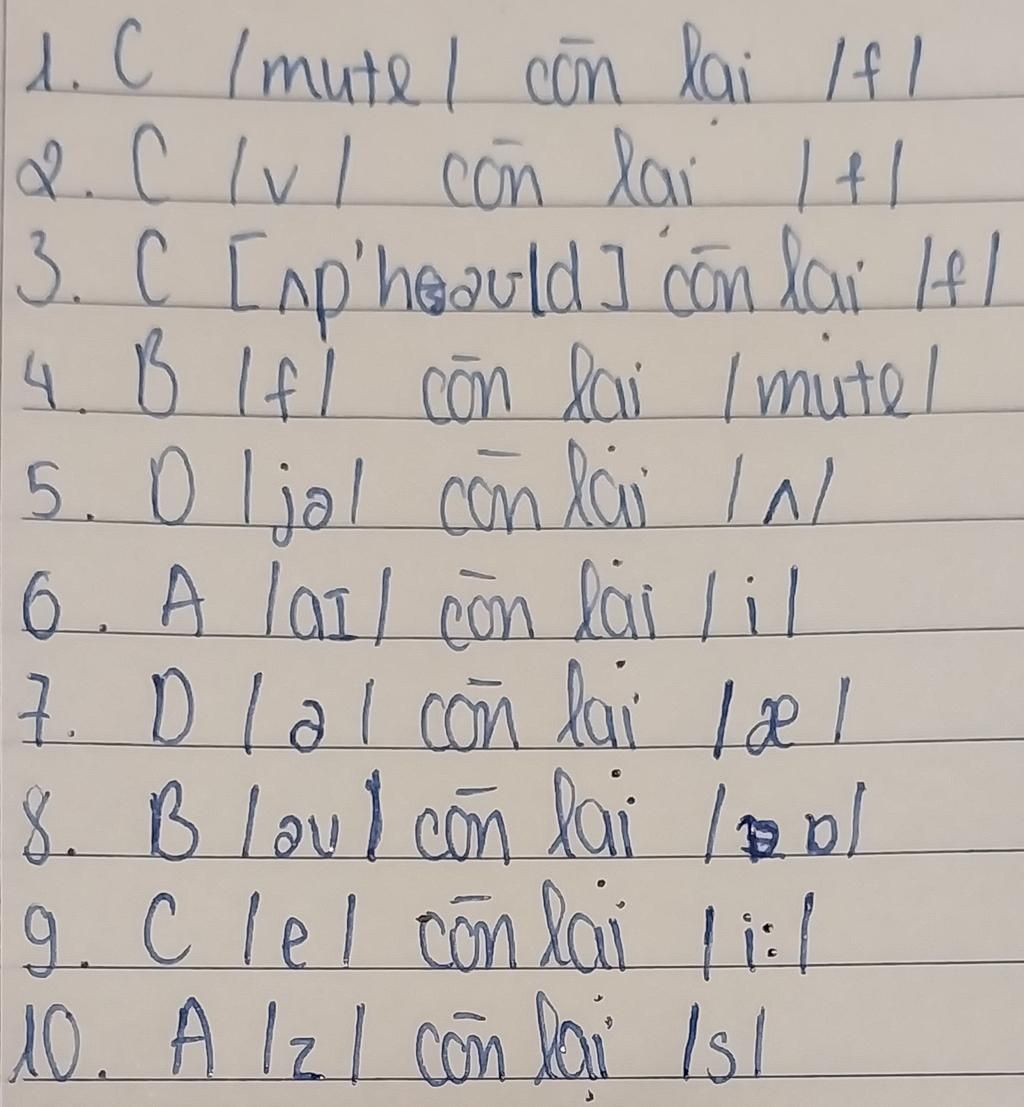 1. C /mute/ còn lại /f/
2. C /v/ còn lại /f/
3. C [ʌp'həʊld] còn lại /f/
4. B /f/ còn lại /mute/
5. D /jə/ còn lại /ʌ/
6. A /aɪ/ còn lại /i/
7. D /ə/ còn lại /æ/
8. B /əʊ/ còn lại /ɒ/
9. C /e/ còn lại /i:/
10. A /z/ còn lại /s/